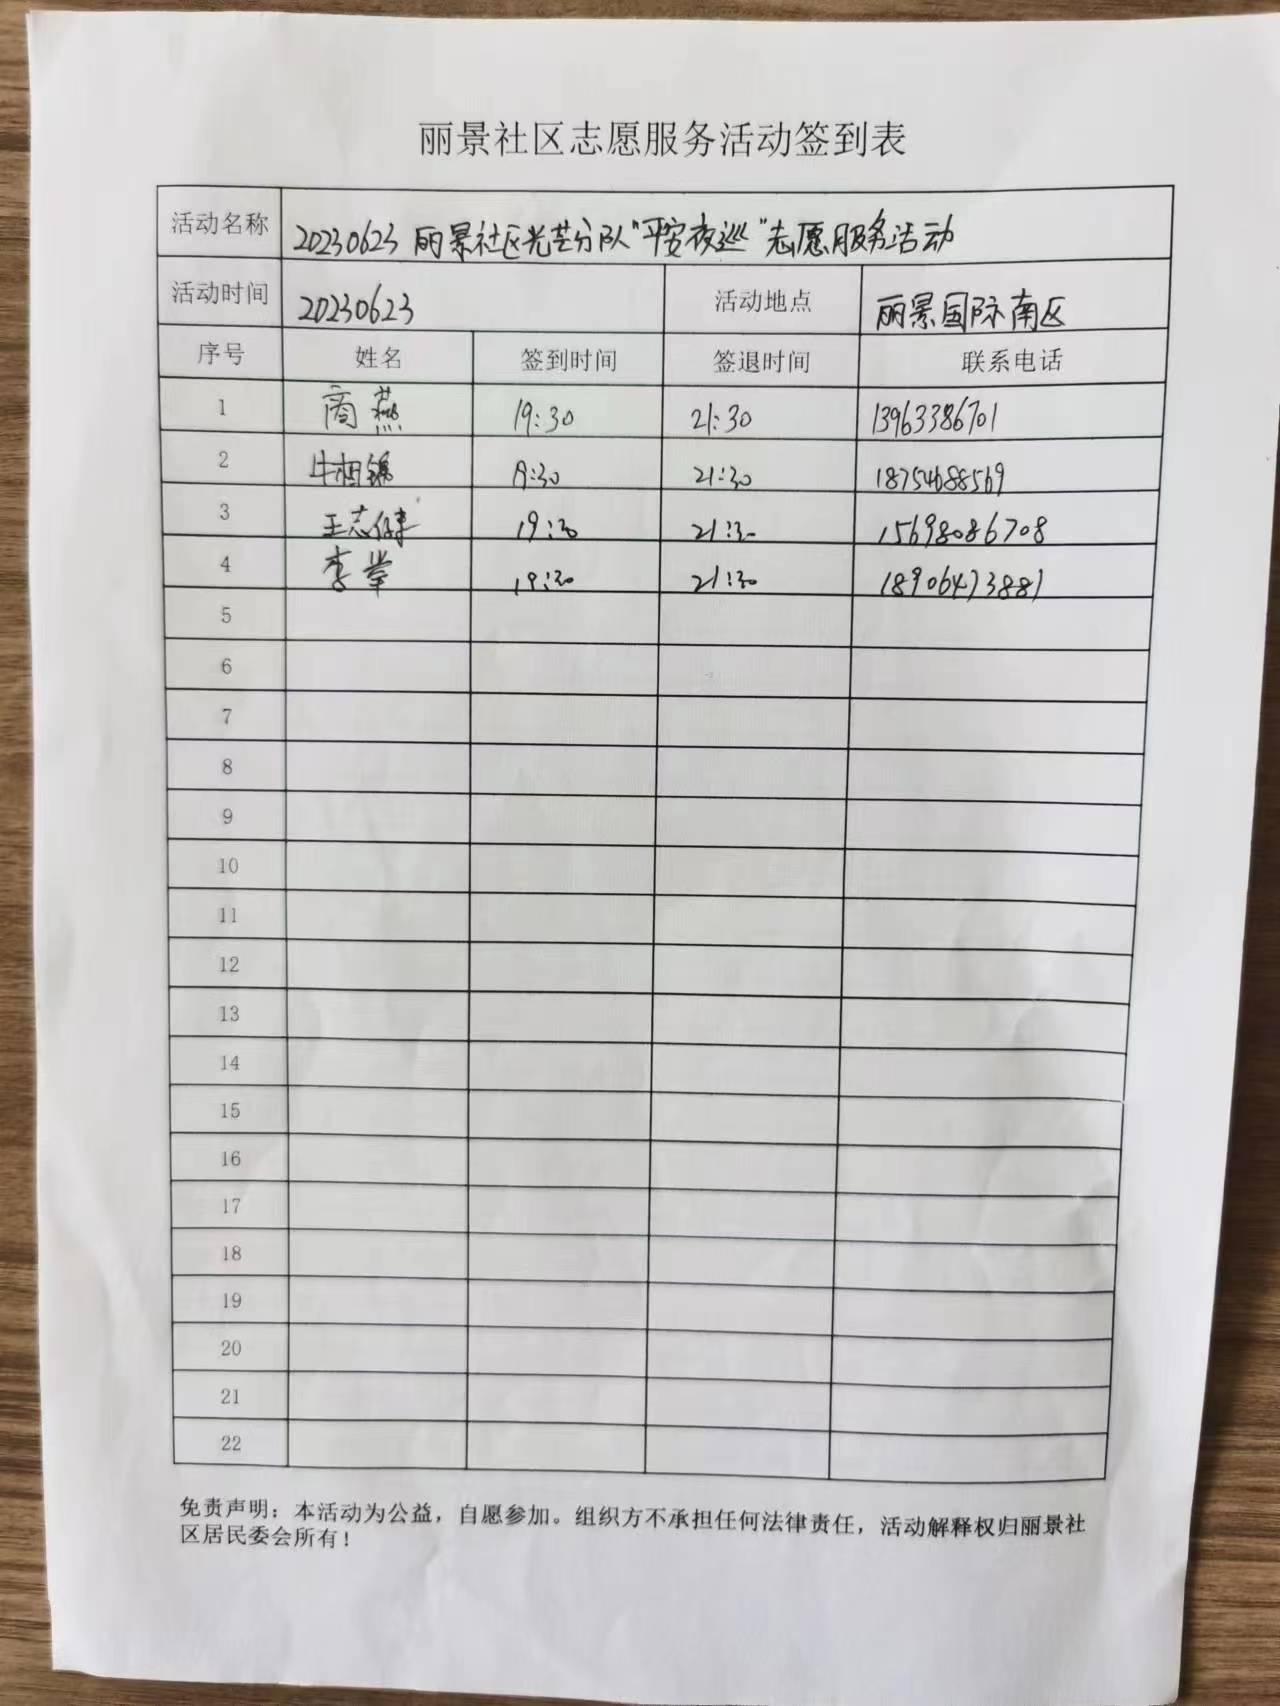 丽景社区志愿服务活动签到表
活动名称 20230623 丽景社区光芒分队"平安夜巡"志愿服务活动
活动时间 20230623 活动地点 丽景国际南区
序号 姓名 签到时间 签退时间 联系电话
1 商燕 19:30 21:30 13963386701
2 牛相锦 19:30 21:30 18754688569
3 王志健 19:30 21:30 15698086708
4 李 19:30 21:30 18906473881
5
6
7
8
9
10
11
12
13
14
15
16
17
18
19
20
21
22
免责声明：本活动为公益，自愿参加。组织方不承担任何法律责任，活动解释权归丽景社
区居民委会所有！